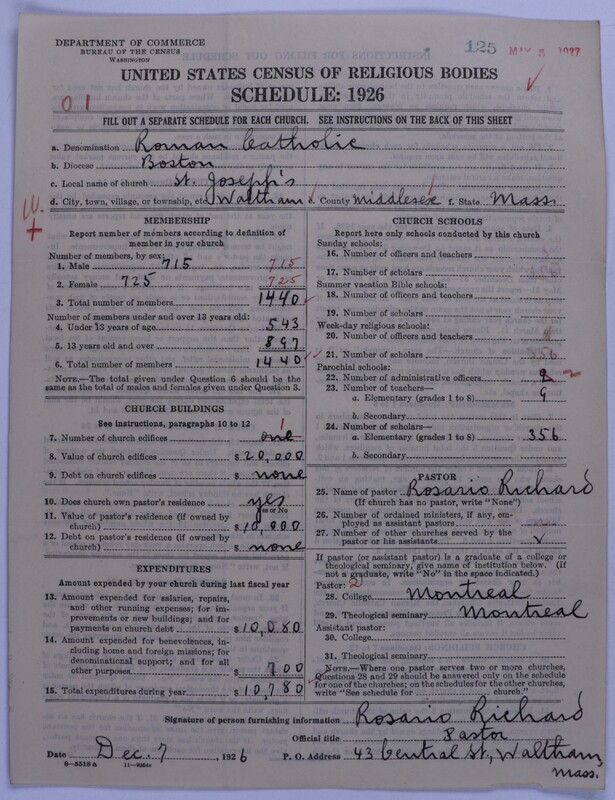 DEPARTMENT OF COMMERCE
BUREAU OF THE CENSUS
WASHINGTON
125 MAY 5 1927
UNITED STATES CENSUS OF RELIGIOUS BODIES
SCHEDULE: 1926
01
FILL OUT A SEPARATE SCHEDULE FOR EACH CHURCH. SEE INSTRUCTIONS ON THE BACK OF THIS SHEET
a. Denomination Roman Catholic
b. Diocese Boston
c. Local name of church St. Joseph's
d. City, town, village, or township, etc. Waltham e. County Middlesex f. State Mass.
MEMBERSHIP
Report number of members according to definition of
member in your church
Number of members, by sex:
1. Male 715 715
2. Female 725 725
3. Total number of members 1440
Number of members under and over 13 years old:
4. Under 13 years of age 543
5. 13 years old and over 897
6. Total number of members 1440
NOTE.—The total given under Question 6 should be
same as the total of males and females given under Question 3.
CHURCH BUILDINGS
See instructions, paragraphs 10 to 12
7. Number of church edifices one 1
8. Value of church edifices $ 20,000
9. Debt on church edifices $ none
10. Does church own pastor's residence? yes
Yes or No
11. Value of pastor's residence (if owned by
church) $ 10,000
12. Debt on pastor's residence (if owned by
church) $ none
EXPENDITURES
Amount expended by your church during last fiscal year
13. Amount expended for salaries, repairs,
and other running expenses; for im-
provements or new buildings; and for
payments on church debt $ 10,080
14. Amount expended for benevolences, in-
cluding home and foreign missions; for
denominational support; and for all
other purposes $ 700
15. Total expenditures during year $ 10,780
CHURCH SCHOOLS
Report here only schools conducted by this church
Sunday schools:
16. Number of officers and teachers
17. Number of scholars
Summer vacation Bible schools:
18. Number of officers and teachers
19. Number of scholars
Week-day religious schools:
20. Number of officers and teachers
21. Number of scholars 356
Parochial schools:
22. Number of administrative officers 2
23. Number of teachers—
a. Elementary (grades 1 to 8) 9
b. Secondary
24. Number of scholars—
a. Elementary (grades 1 to 8) 356
b. Secondary
PASTOR
25. Name of pastor Rosario Richard
(If church has no pastor, write "None")
26. Number of ordained ministers, if any, em-
ployed as assistant pastors
27. Number of other churches served by the
pastor or his assistants
If pastor (or assistant pastor) is a graduate of a college or
theological seminary, give name of institution below. (If
not a graduate, write "No" in the space indicated.)
Pastor: 2
28. College Montreal
29. Theological seminary Montreal
Assistant pastor:
30. College
31. Theological seminary
NOTE.—Where one pastor serves two or more churches,
Questions 28 and 29 should be answered only on the schedule
for one of the churches; on the schedules for the other churches,
write "See schedule for church."
Signature of person furnishing information Rosario Richard
Official title Pastor
Date Dec. 7, 1926 P. O. Address 43 Central St., Waltham,
Mass.
8—5518 a